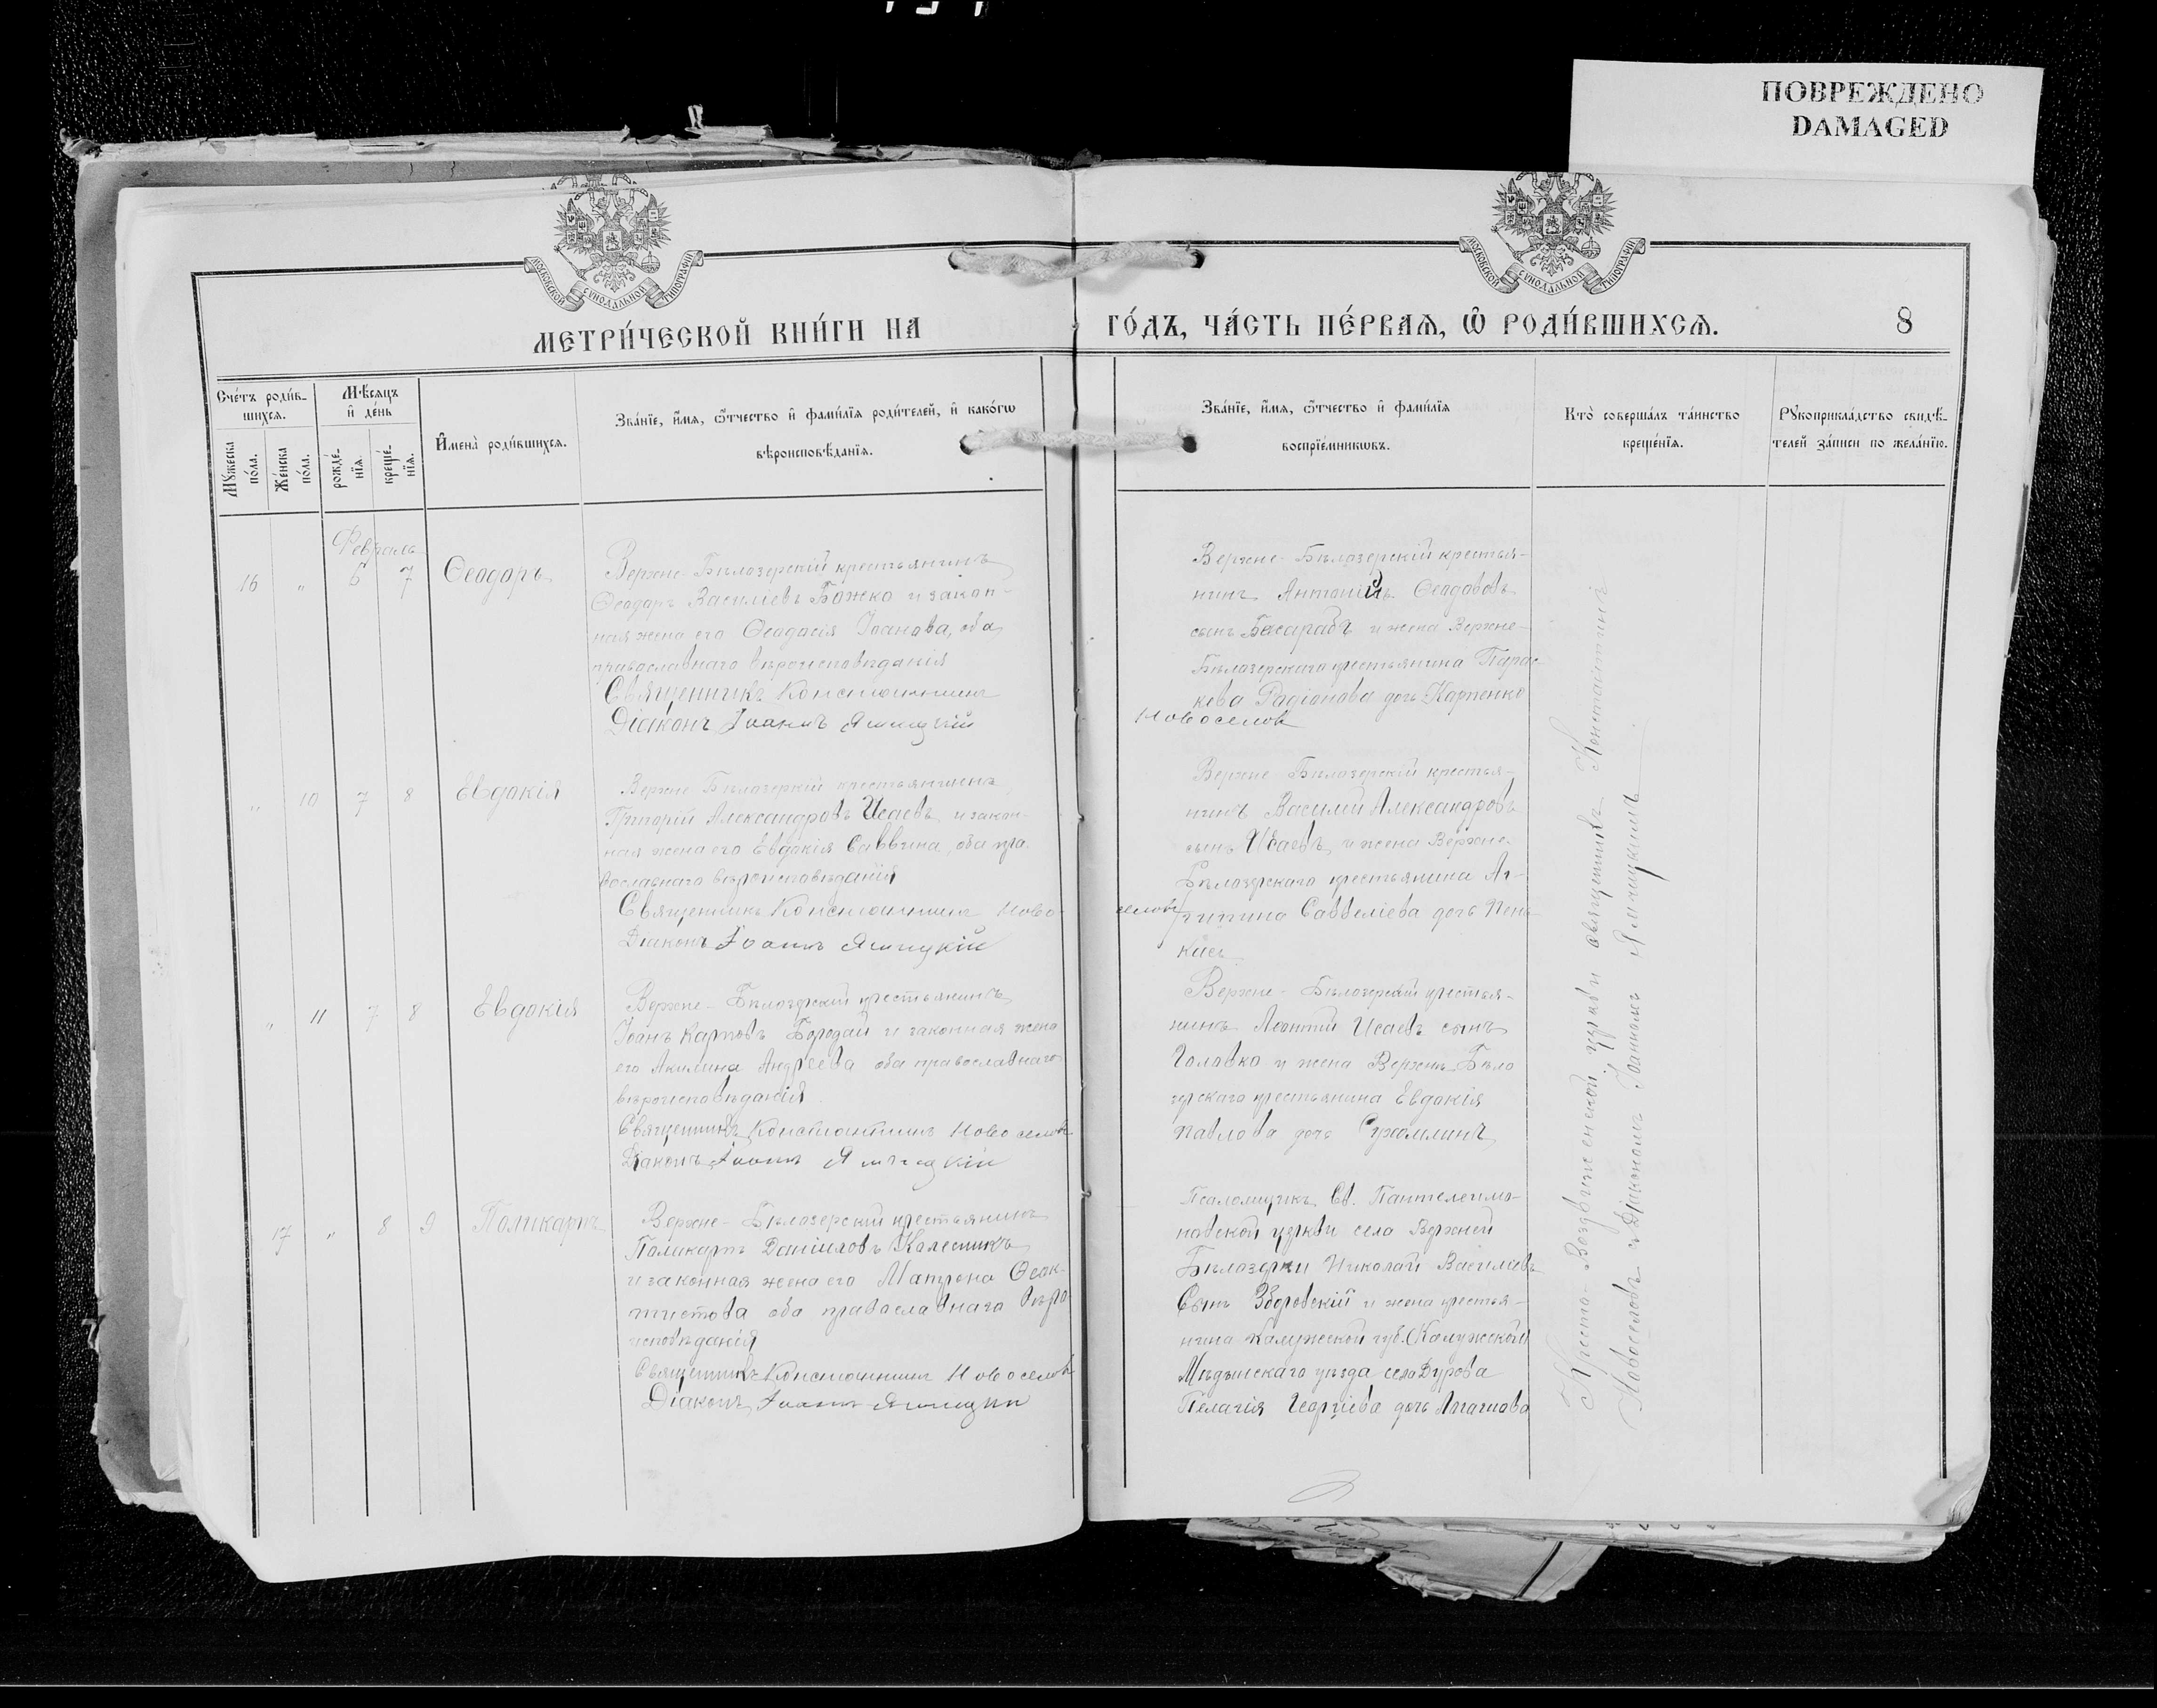 ПОВРЕЖДЕНО
DAMAGED
МОСКОВСКОЙ СѴНОДАЛЬНОЙ ТИПОГРАФІИ
МОСКОВСКОЙ СѴНОДАЛЬНОЙ ТИПОГРАФІИ
МЕТРИ́ЧЕСКОЙ КНИ́ГИ НА
ГО́ДЪ, ЧА́СТЬ ПЕ́РВАѦ, Ѽ РОДИ́ВШИХСѦ.
8
Сче́тъ роди́в-
шихсѧ.
Мꙋжеска
по́ла.
Же́нска
по́ла.
Мѣ́сѧцъ
и҆ де́нь
рожде́-
нїѧ.
креще́-
нїѧ.
И҆мена̀ роди́вшихсѧ.
Зва́нїе, и҆́мѧ, ѻ҆́тчество и҆ фами́лїѧ роди́телей, и҆ како́гѡ
вѣроисповѣ́данїѧ.
Зва́нїе, и҆́мѧ, ѻ҆́тчество и҆ фами́лїѧ
воспрїе́мникѡвъ.
Кто̀ соверша́лъ та́инство
креще́нїѧ.
Рꙋкоприкла́дство свидѣ́-
телей за́писи по жела́нїю.
Февраль
16 " 6 7 Ѳеодоръ
Верхне-Бѣлозерскій крестьянинъ
Ѳеодоръ Василіевъ Божко и закон-
ная жена его Ѳеодосія Іоанова, оба
православнаго вѣроисповѣданія
Священникъ Константинъ
Діаконъ Іоаннъ Ямицкій
Верхне-Бѣлозерскій крестья-
нинъ Антоній Ѳеодоровъ
сынъ Басарабъ и жена Верхне-
Бѣлозерскаго крестьянина Парас-
кева Радіонова дочь Карпенко
Новоселов
" 10 7 8 Евдокія
Верхне Бѣлозеркій крестьянинъ
Григорій Александровъ Исаевъ и закон-
ная жена его Евдокія Саввина, оба пра-
вославнаго вѣроисповѣданія
Священникъ Константинъ Ново-
Діаконъ Іоаннъ Ямицкій
Верхне Бѣлозерскій крестья-
нинъ Василій Александровъ
сынъ Исаевъ и жена Верхне-
Бѣлозерскаго крестьянина Аг-
селов рипина Савеліева дочь
" 11 7 8 Евдокія
Верхне-Бѣлозерскій крестьянинъ
Іоанъ Карповъ Бородай и законная жена
его Акилина Андреева оба православнаго
вѣроисповѣданія
Священникъ Константинъ Новоселов
Діаконъ Іоаннъ Ямицкій
Верхне-Бѣлозерскій крестья-
нинъ Леонтій Исаевъ сынъ
Головко и жена Верхне-Бѣло
зерскаго крестьянина Евдокія
Павлова дочь Сухомлинъ
17 " 8 9 Поликарпъ
Верхне-Бѣлозерскій крестьянинъ
Поликарпъ Даніиловъ Колесникъ
и законная жена его Матрона Ѳеок-
тистова оба православнаго вѣро
исповѣданія
Священникъ Константинъ Новоселов
Діаконъ Іоаннъ Ямицкій
Псаломщикъ Св. Пантелеимо-
новской церкви села Верхней
Бѣлозерки Николай Василіевъ
Сынъ Зборовскій и жена крестья-
нина Калужской губ. Калужской
Мѣдынскаго уѣзда села Дурова
Пелагія Георгіева дочь
Кресто-Воздвиженской церкви священникъ Константинъ
Новоселовъ з Діакономъ Іоанномъ Ямицкимъ